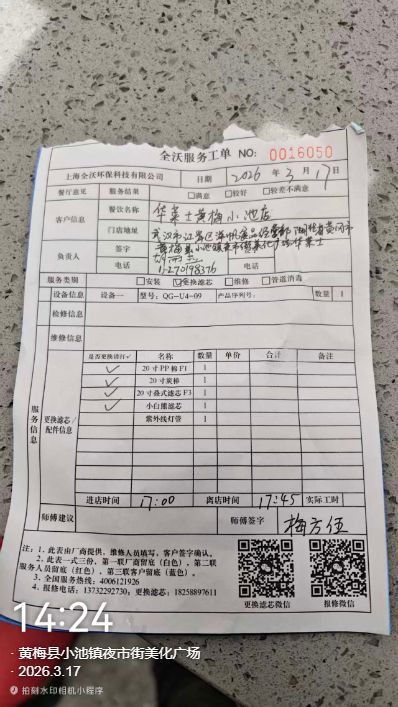 全沃服务工单 NO: 0016050
上海全沃环保科技有限公司 日期 2026 年 3 月 17 日
餐厅意见 服务结果 □满意 □较好 □较差不满意
客户信息 餐饮名称 华莱士黄梅小池店
门店地址 武汉市江岸区
黄梅县小池镇夜市街美化广场华莱士
负责人 签字
电话 15270198376 电话
服务类别 □安装 ☑更换滤芯 □维修 □管道消毒
设备信息 设备一 型号: QG-U4-09 产品序列号: 数量 1
检修信息
维修信息
服务信息
更换滤芯/配件信息
是否更换请打✓ 名称 数量 单价 合计 备注
✓ 20寸PP棉F1 1
✓ 20寸炭棒 1
✓ 20寸叠式滤芯F3 1
✓ 小白熊滤芯 1
紫外线灯管 1
进店时间 17:00 离店时间 17:45 实际工时
师傅建议 师傅签字 梅方伍
注: 1、此表由厂商提供, 维修人员填写, 客户签字确认。
2、此表一式三份, 第一联厂商留底（白色）, 第二联
服务人员留底（红色）, 第三联客户留底（蓝色）。
3、全国服务热线: 4006121926
4、报修电话: 13732292730; 更换滤芯: 18258897611
更换滤芯微信 报修微信
14:24
· 黄梅县小池镇夜市街美化广场
· 2026.3.17
拍刻水印相机小程序